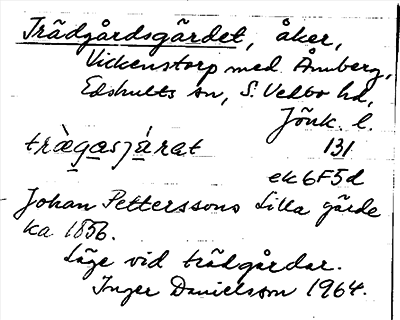 Trädgårdsgärdet, åker,
Vickenstorp med Åmberg,
Edshults sn, S. Vedbo hd,
Jönk. l.
trägasjärat 131
ek 6F5d
Johan Petterssons Lilla gärde
ka 1856.
Läge vid trädgårdar.
Inger Danielsson 1964.